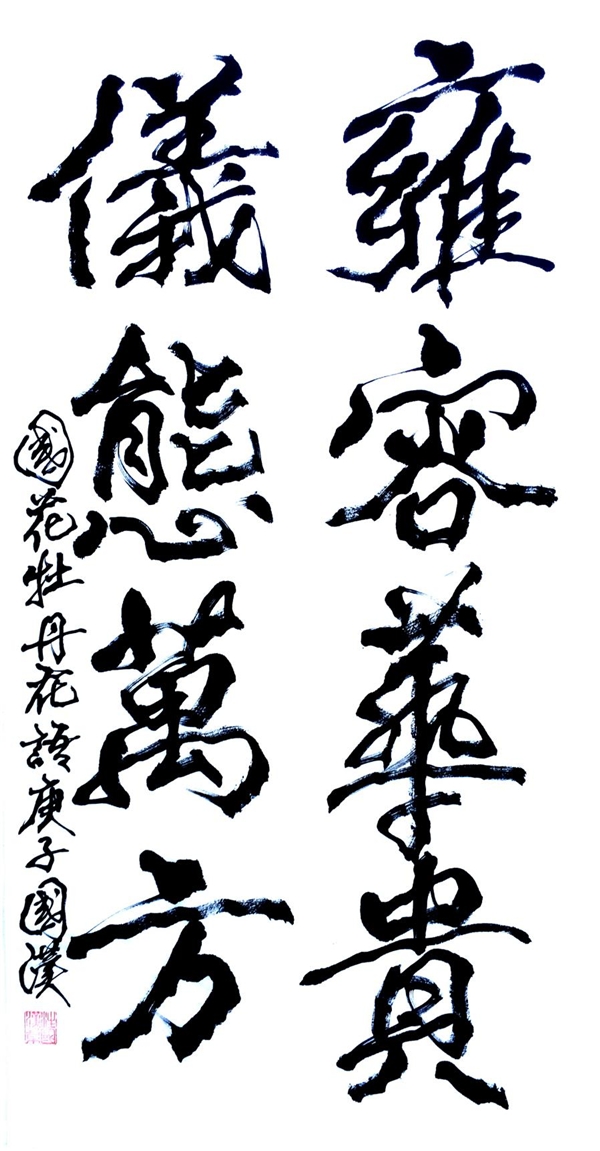 雍容華貴
儀態萬方
國花牡丹花語庚子國漢